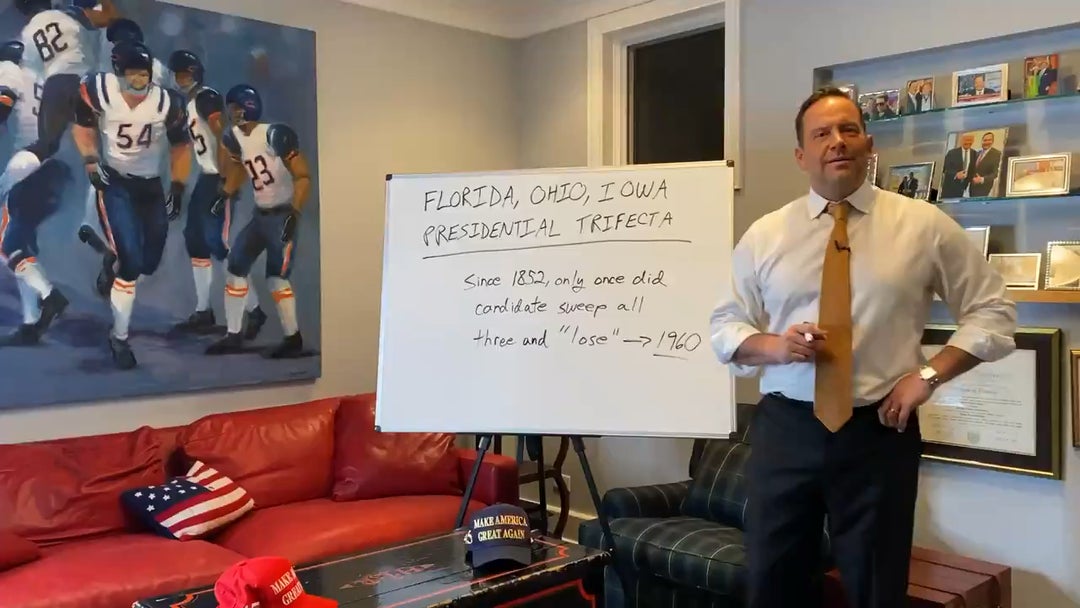 82
54
23
FLORIDA, OHIO, IOWA
PRESIDENTIAL TRIFECTA
Since 1852, only once did
candidate sweep all
three and "lose" → 1960
MAKE AMERICA
GREAT AGAIN
45